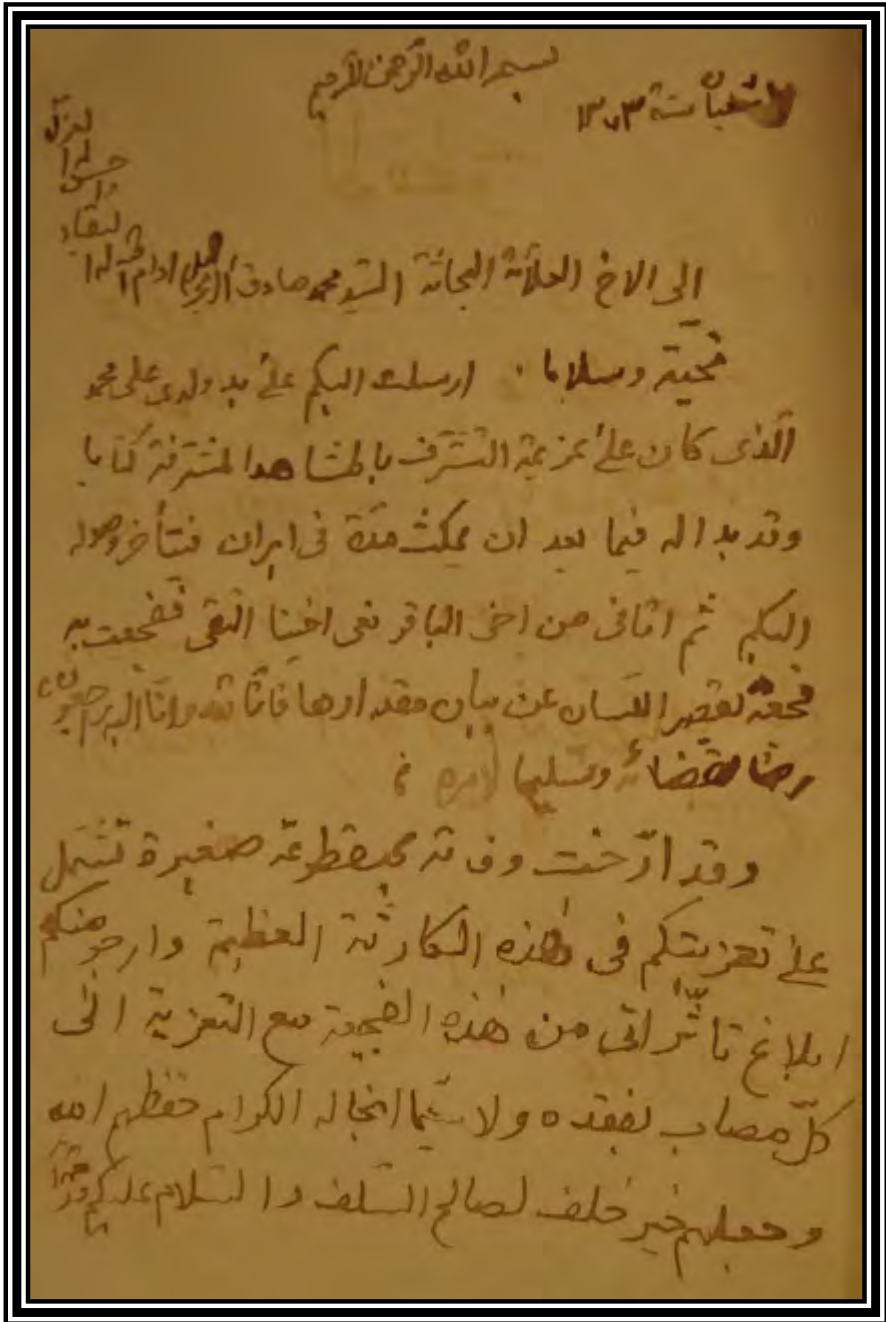 بسم الله الرحمن الرحيم
شعبان سنة ١٣٧٣
الى الاخ العلامة البحاثة السيد محمد صادق ادام الله
تحية وسلاما . ارسلت اليكم على يد ولدي علي محمد
الذى كان على عزيمة التشرف بالمشاهد المشرفة كتابا
وقد بدا له فيما بعد ان يمكث مدة فى ايران فتأخر وصوله
اليكم ثم اتانى من اخى الباقر نعى اخينا التقى ففجعت به
فجعة يقصر اللسان عن بيان مقدارها فانا لله وانا اليه راجعون
رضا بقضائه وتسليما لامره
وقد ارّخت وفاته بمقطوعة صغيرة تشتمل
على تعزيتكم فى هذه الكارثة العظيمة وارجو منكم
ابلاغ تأثّراتى من هذه الفجيعة مع التعزية الى
كلّ مصاب بفقده ولا سيّما انجاله الكرام حفظهم الله
وجعلهم خير خلف لصالح السلف والسلام عليكم